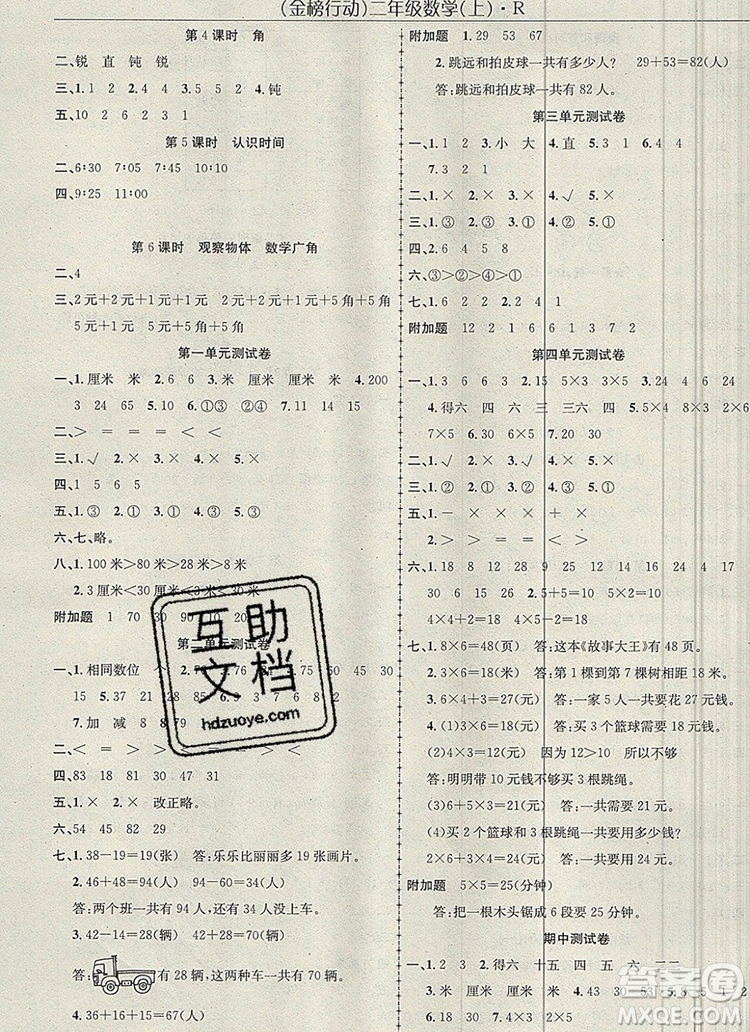 (金榜行动)二年级数学(上)·R
第4课时 角
二、锐 直 钝 锐
三、1.1 2.4 3.4 4.2 5.钝
五、10 2 6 2 3 1
第5课时 认识时间
二、6:30 7:05 7:45 10:10
四、9:25 11:00
第6课时 观察物体 数学广角
二、4
三、2元+2元+1元 2元+2元+5角+5角
5元+1元 5元+5角+5角
第一单元测试卷
一、1.厘米 米 2.6 6 3.米 厘米 米 4.200
3 24 65 5.10 6.①③ ②④ 7.11 14 15
二、> = = = < <
三、1.√ 2.× 3.× 4.× 5.×
四、1 5 6 5
五、1.③ 2.① 3.② 4.① 5.③
六、七、略。
八、1.100米>80米>28米>8米
2.3厘米<30厘米<3米<30米
附加题 1 70 30 90 10 20
第二单元测试卷
一、1.相同数位 个 45 30
15 5.37 6. 15 9
7.加 减 8 8
二、< = > > < >
四、83 18 81 30 47 31
五、1.× 2.× 改正略。
六、54 45 82 29
七、1.38-19=19(张) 答:乐乐比丽丽多19张画片。
2.46+48=94(人) 94-94=0(人)
答:两个班一共有94人,还有0人没有船坐。
3.42-14=28(辆) 28+42=70(辆)
答: 有28辆,这两种车一共有70辆。
4.36+16=52(只)
附加题 1.29 53 67
2.跳远和拍皮球一共有多少人? 29+53=82(人)
答:跳远和拍皮球一共有82人。
第三单元测试卷
一、1.1 2 3.小 大 4.直 5.3 1 6.4 4
7.3 2 1
二、1.× 2.× 3.× 4.√ 5.×
三、1.③ 2.① 3.② 4.③ 5.②
四、2.6 4 5 8
六、③>②>④>①
七、1.6 2 1 2.略
附加题 12 2 1 6 6 1 3 7 2
第四单元测试卷
一、1.3 6 6 3 2.15 5×3 3×5 3.6 12 24
4.得六 四 四 三 三六 四 5.24 5×4 8×3
7×5 6.30 6×5 7.20 30
二、1.× 2.× 3.√ 4.√ 5.×
四、1.② 2.② 3.③ 4.② 5.②
五、1.- × × × + ×
2.> > = = < >
六、1.18 10 24 25 15 16 18 12 4 7
30 6 15 12 8 20 2.48 24
4×4+2=18 4×5-2=18
七、1.6×8=48(页) 答:这本《故事大王》有48页。
2.6×3=18(米) 答:第1棵到第7棵树相距18米。
3.4+5=9(人) 3×9=27(元) 答:一家5人一共要花27元钱。
4.(1)9×3=27(元) 答:买3个篮球要27元钱。
(2)4×3=12(元) 12>10 所以不够
答:明明带10元钱不够买3条跳绳。
(3)6+5×3=21(元) 答:一共需要21元。
(4)买2个篮球和3根跳绳一共要用多少钱?
2×6+3×4=24(元) 答:一共需要24元。
附加题 5×5=25(分钟)
答:把一根木头锯成6段一共需要25分钟。
期中测试卷
一、1.2 3 2.得六 十五 四 五 六 二 二
3.米 厘米 厘米 米 4.43 30 53 5.
互助
文档
hdzuoye.com
答案圈
MXQE.COM